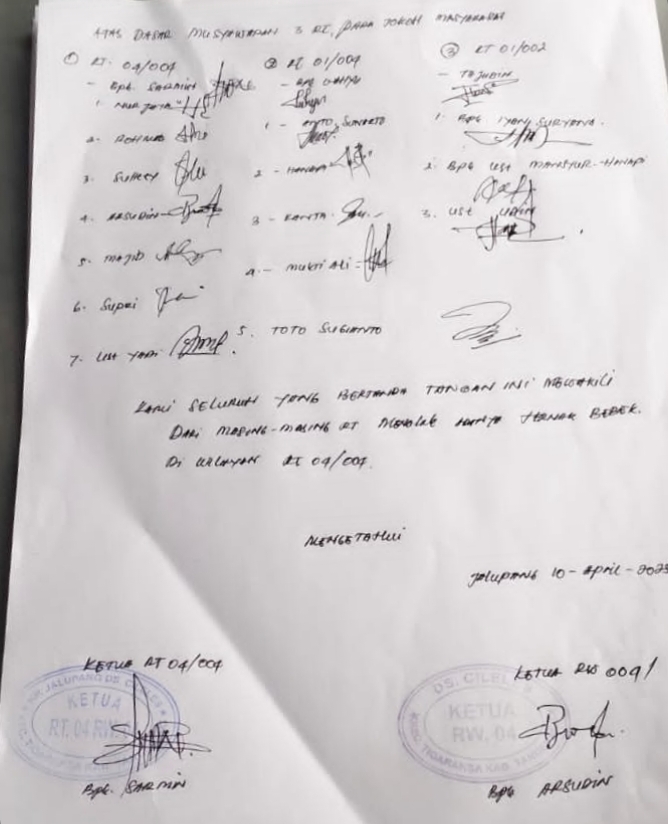 ATAS DASAR MUSYAWARAH 3 RT, PARA TOKOH MASYARAKAT
① RT. 04/004
- BPK SARMIN
1. NUR JAYA
2. ROHMAD
3.
4. ARSUDIN
5. MAJID
6. SUPRI
7. Ust YADI
② RT 01/004
- BPK
1 - ANTO SUNARTO
2 - HANAPI
3 - KANTA
4. - MUKTI ALI
5. TOTO SUGIANTO
③ RT 01/002
- TAJUDIN
1. BPK IYANG SURYANA.
2. BPK UST MANSYUR-HANAPI
3. UST UDIN
KAMI SELURUH YANG BERTANDA TANGAN INI MEWAKILI
DARI MASING-MASING RT MENOLAK ADANYA TERNAK BEBEK.
Di WILAYAH RT 04/004.
MENGETAHUI
JALUPANG 10 - April - 2025
KETUA RT 04/004
KP. JALUPANG DS. CILELES
KETUA
RT. 04 RW.
TIGARAKSA KAB.
BPK. SARMIN
KETUA RW 004
DS. CILELES
KETUA
RW. 04
TIGARAKSA KAB.
BPK ARSUDIN